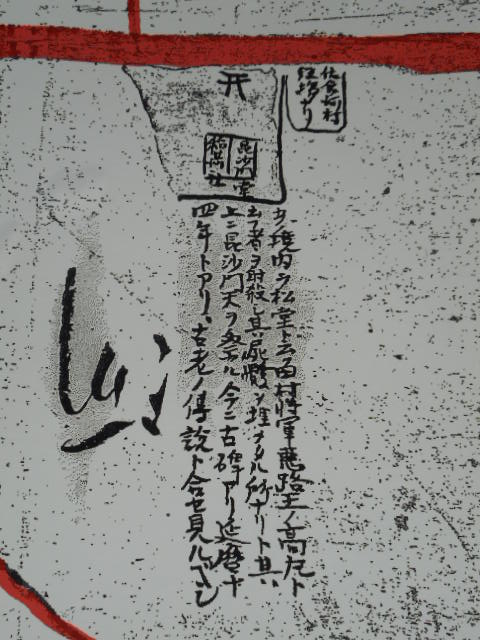 佐倉河村
経塚アリ
毘沙門堂
稲荷社
境内ヲ松堂ト云フ田村将軍悪路王ノ高丸ト
云フ者ヲ射殺シ其屍骸ヲ埋メタル所ナリト其
上ニ毘沙門天ヲ祭ル今ニ古碑アリ延暦廿
四年トアリ古老ノ傳説ト合セ見ルベシ